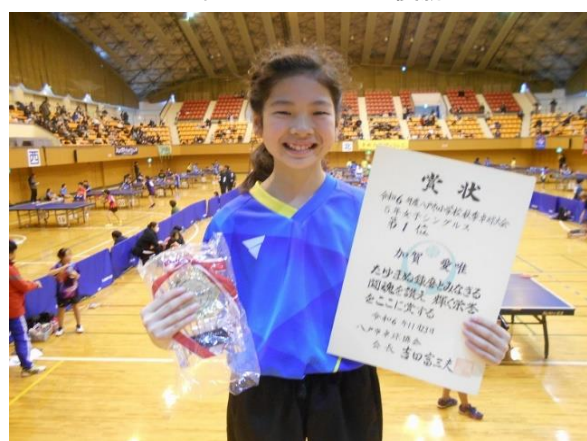 賞状
令和6年度八戸市小学校秋季卓球大会
5年女子シングルス
第1位
加賀 愛唯
たゆまぬ錬磨とみなぎる
闘魂を讃え 輝く栄誉
をここに賞する
令和6年11月3日
八戸市卓球協会
会長 吉田富三夫
西